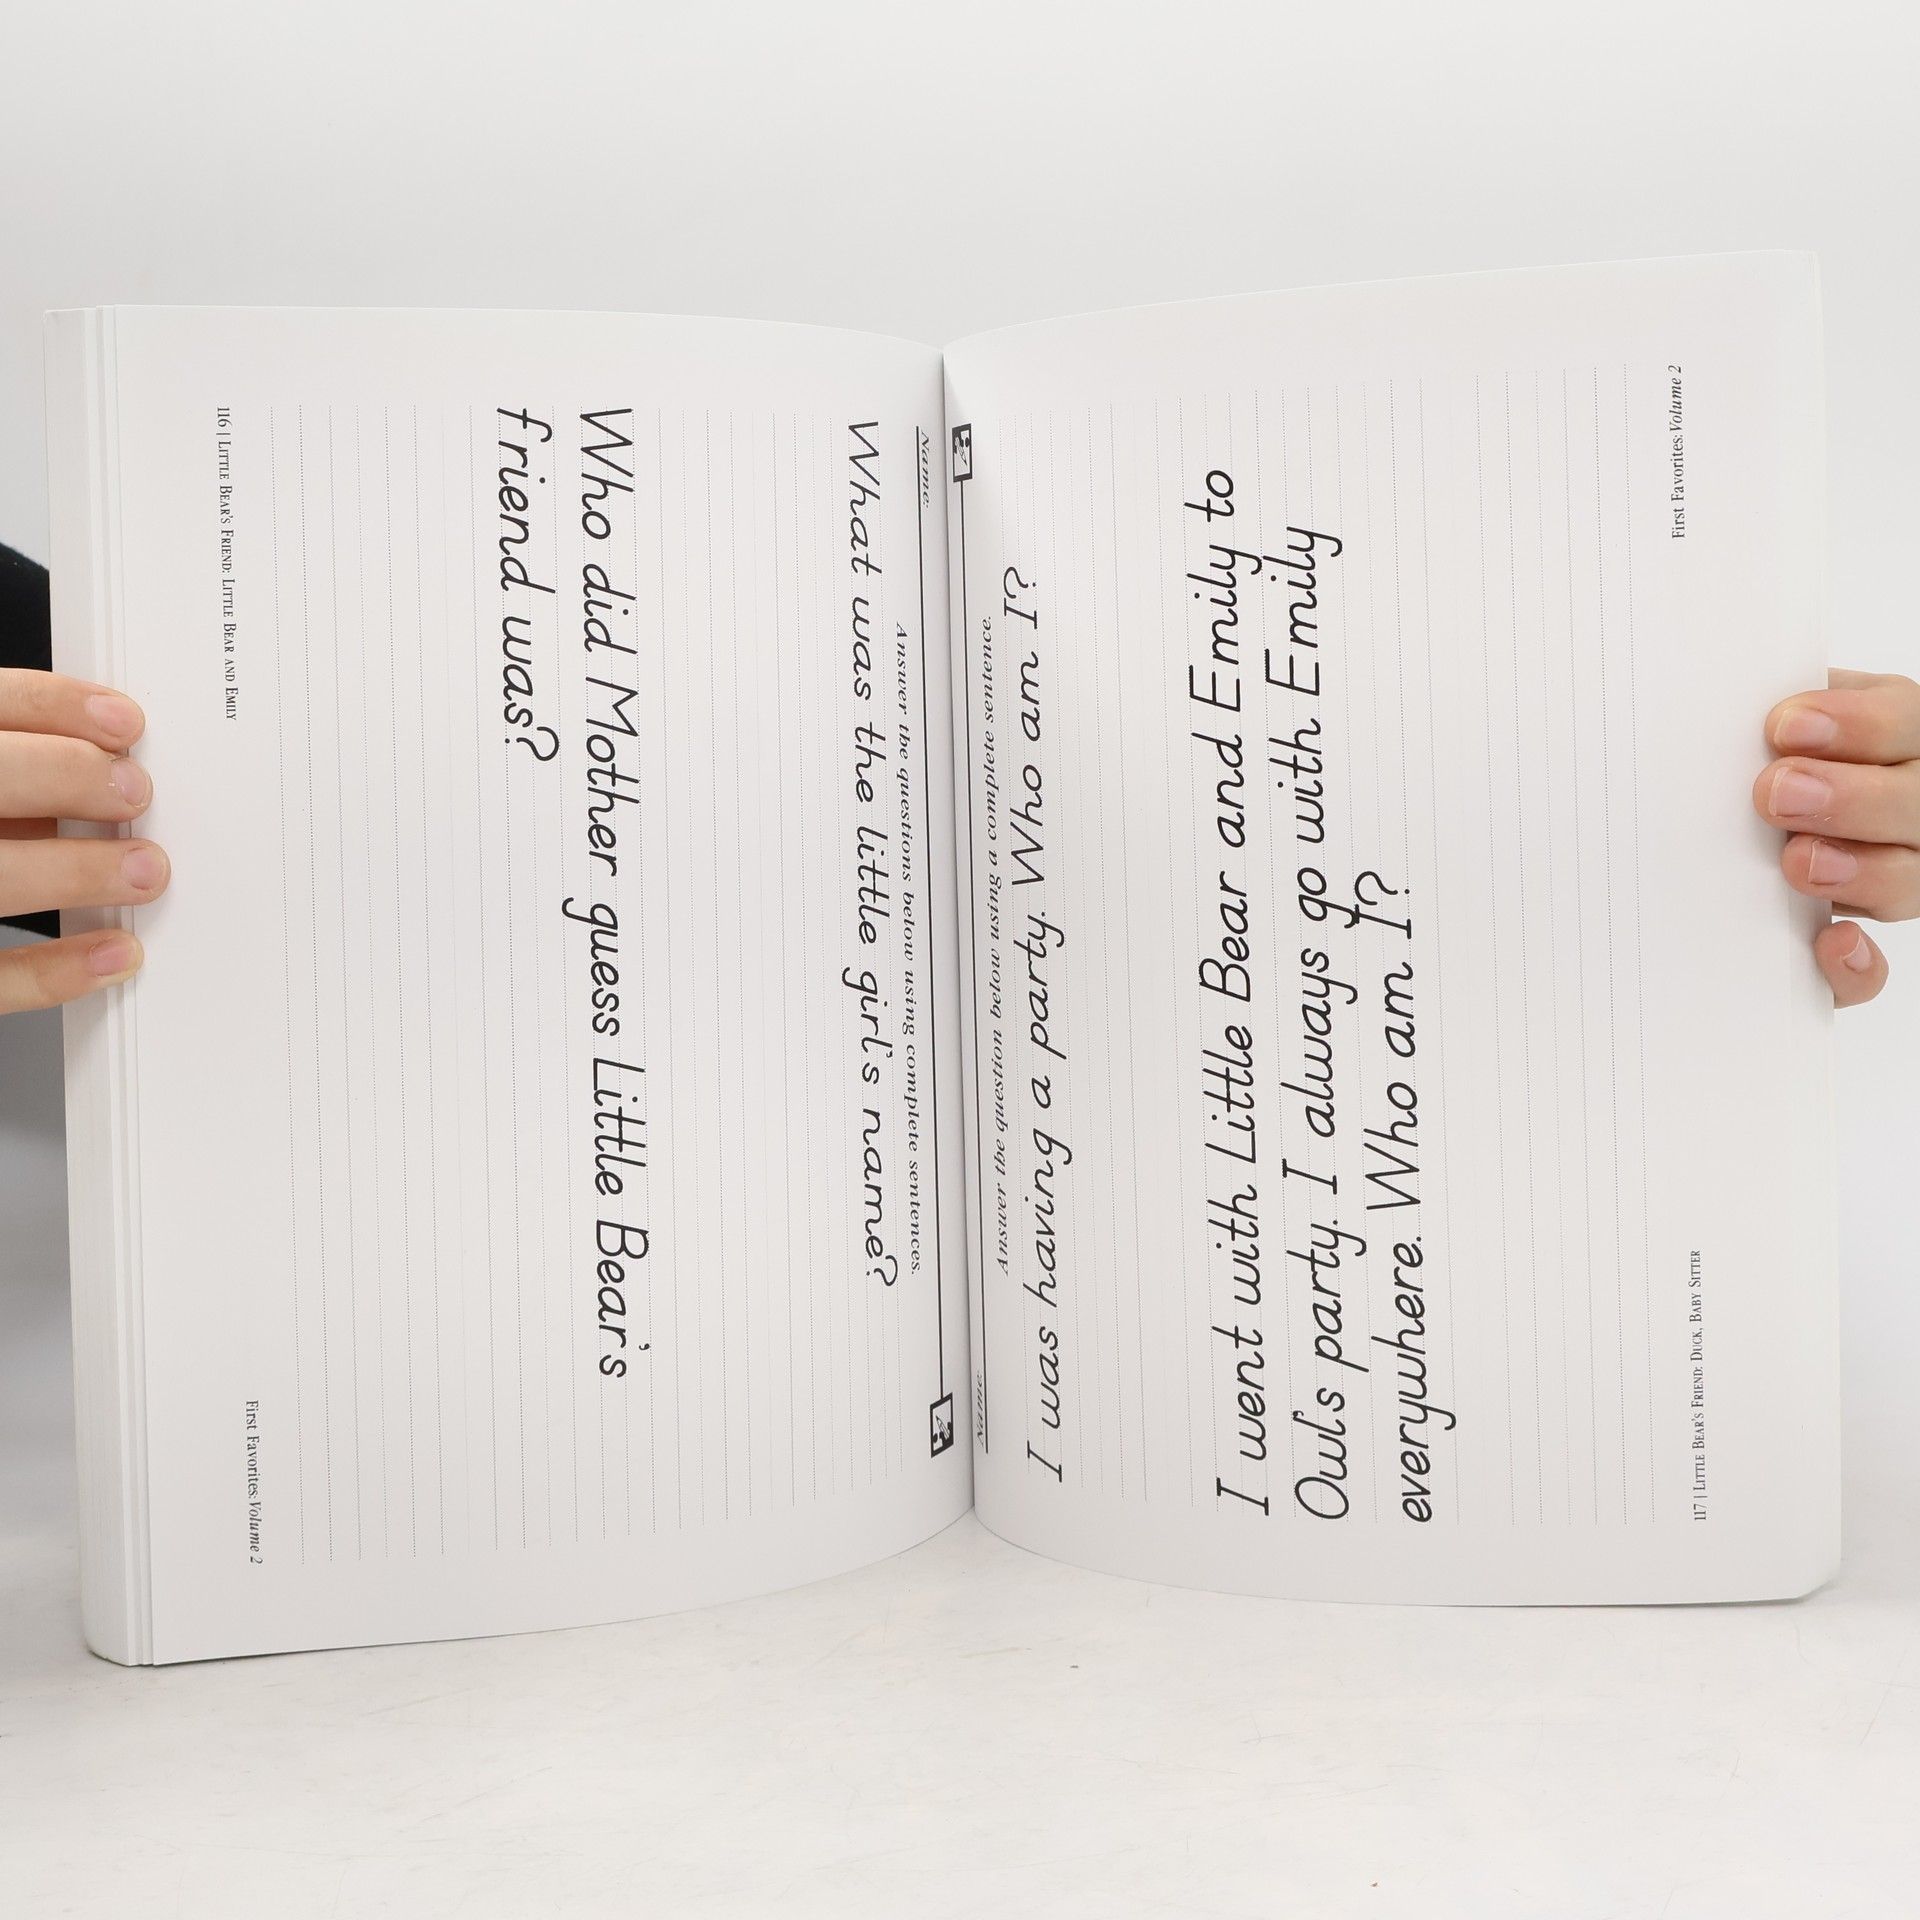 Name:
Answer the questions below using complete sentences.
What was the little girl's name?
Who did Mother guess Little Bear's
friend was?
116 | LITTLE BEAR'S FRIEND: LITTLE BEAR AND EMILY
First Favorites: Volume 2
Name:
Answer the question below using a complete sentence.
I was having a party. Who am I?
I went with Little Bear and Emily to
Owl's party. I always go with Emily
everywhere. Who am I?
117 | LITTLE BEAR'S FRIEND: DUCK, BABY SITTER
First Favorites: Volume 2